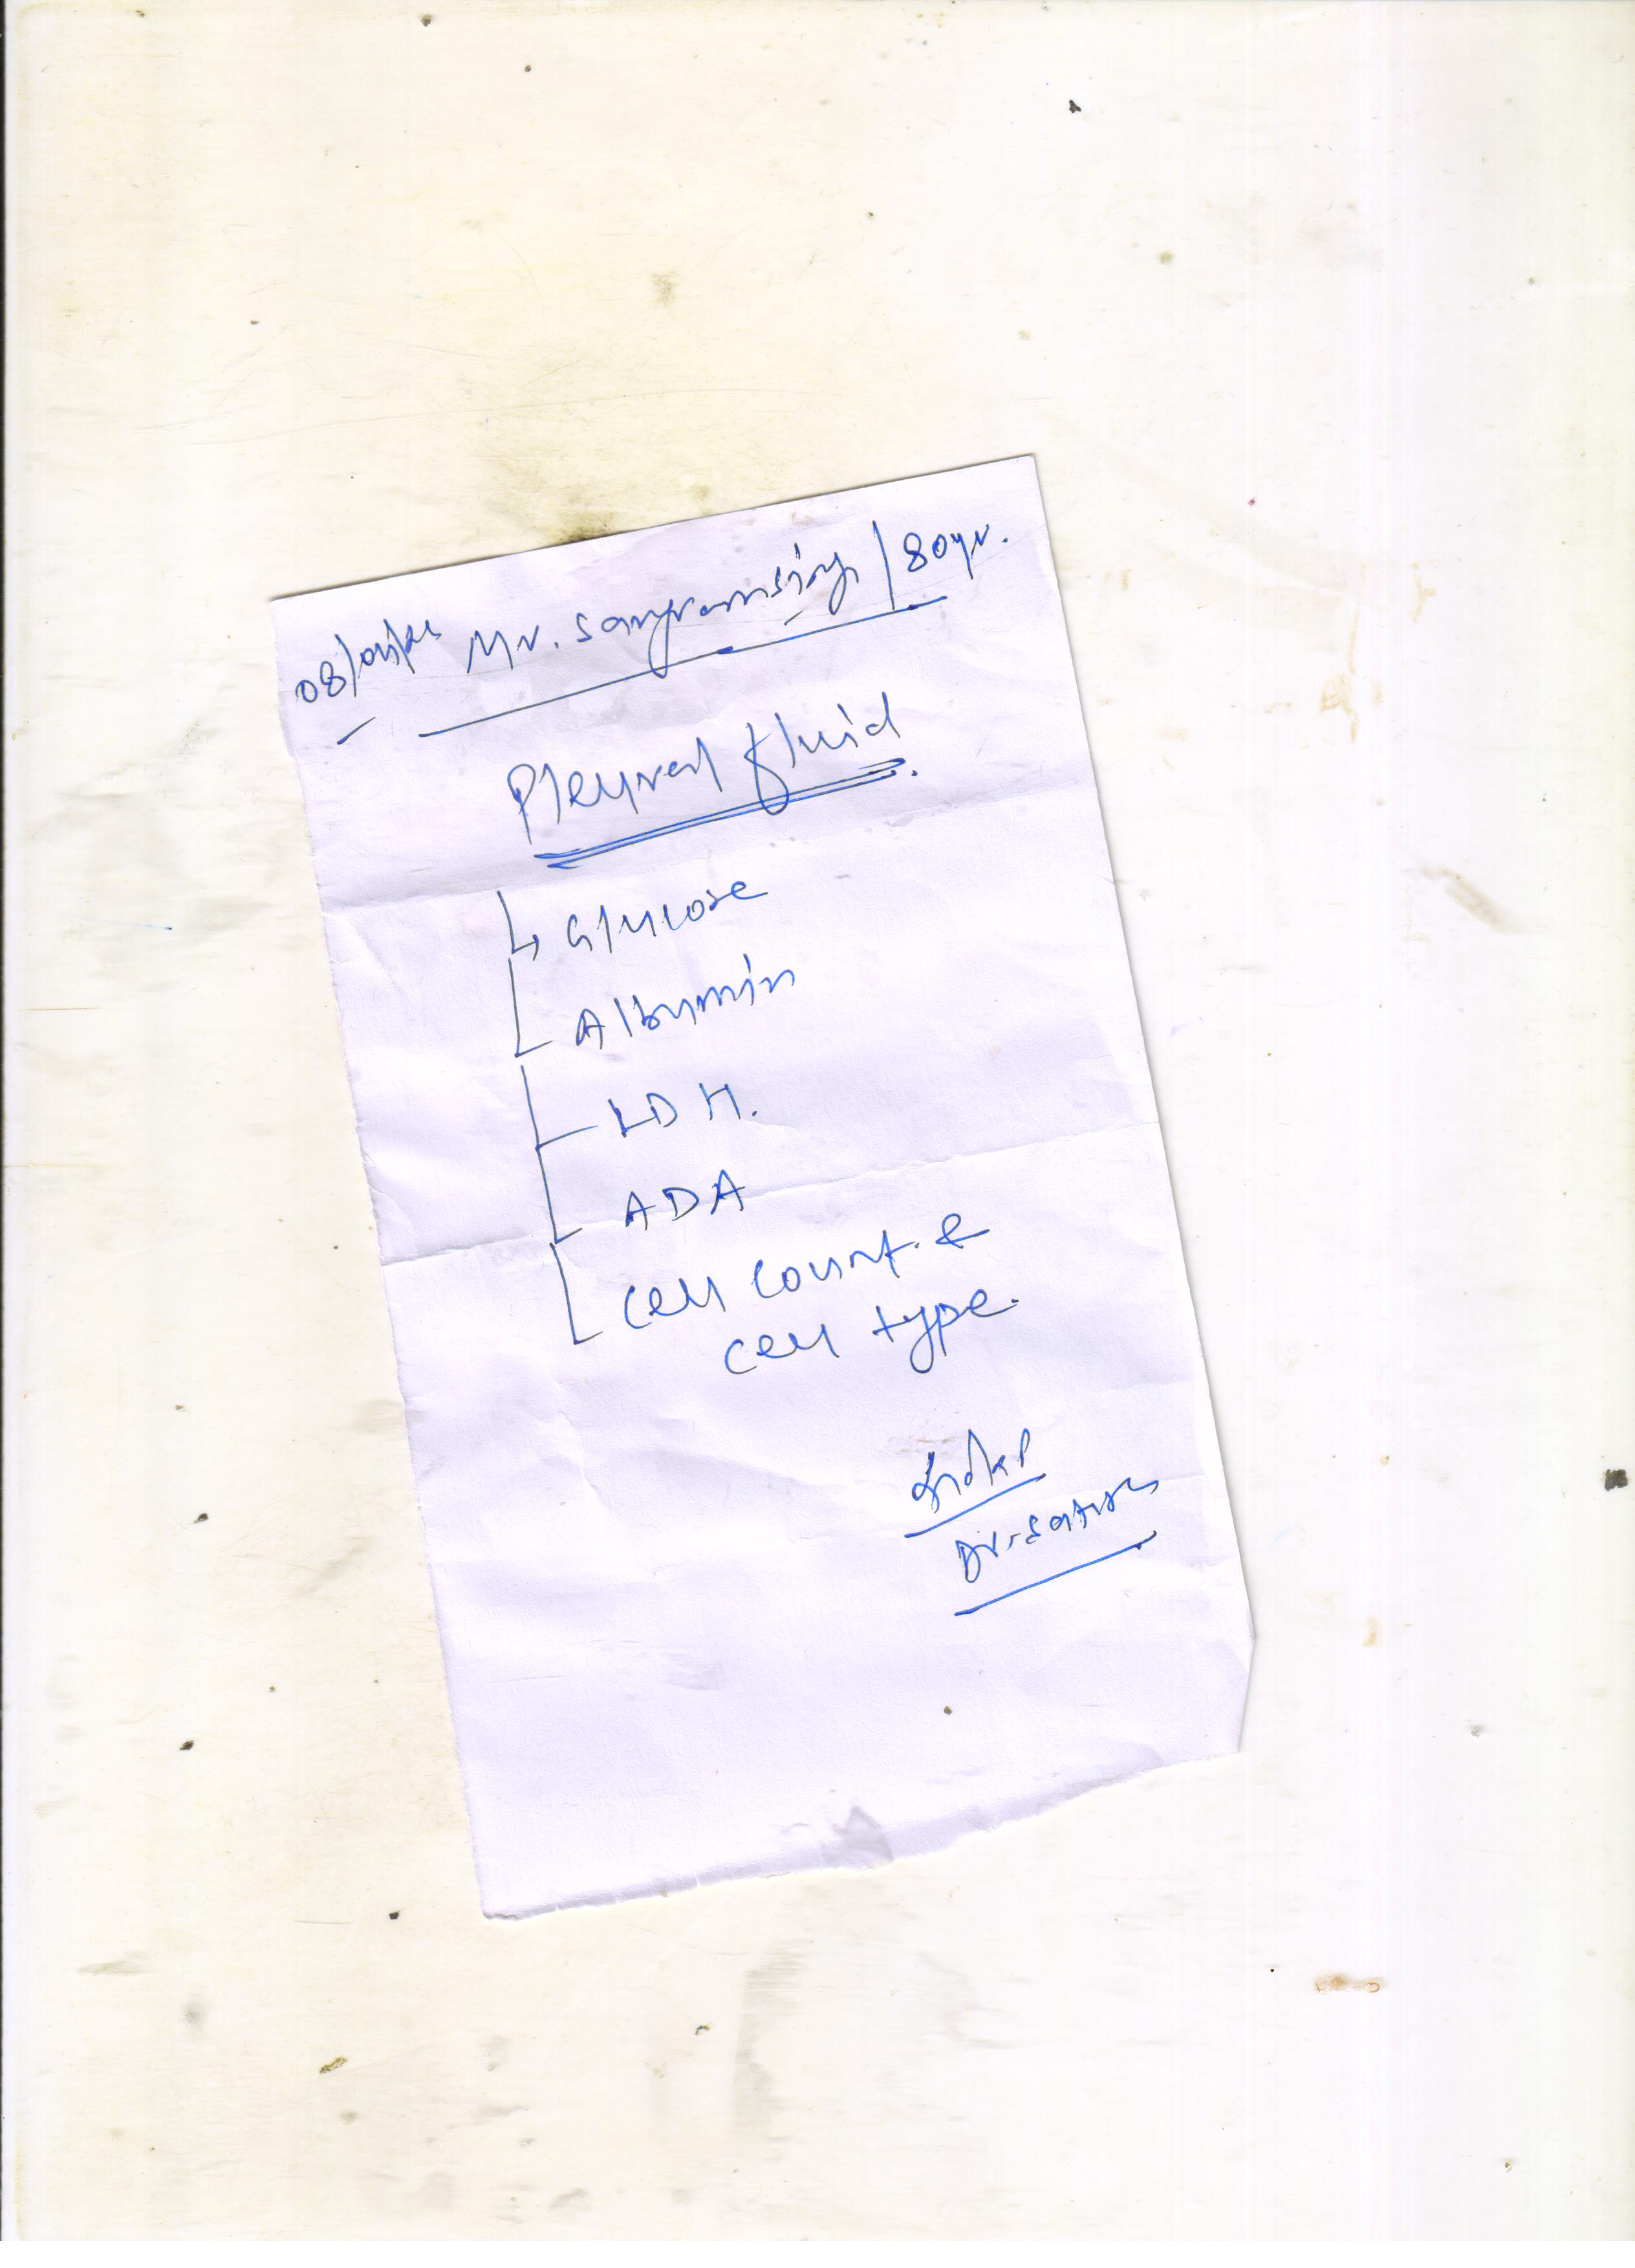 Mr. Sangramsing / 80yr.
Pleural fluid
Glucose
Albumin
LDH.
ADA
Cell count &
cell type.
Dr. Satish